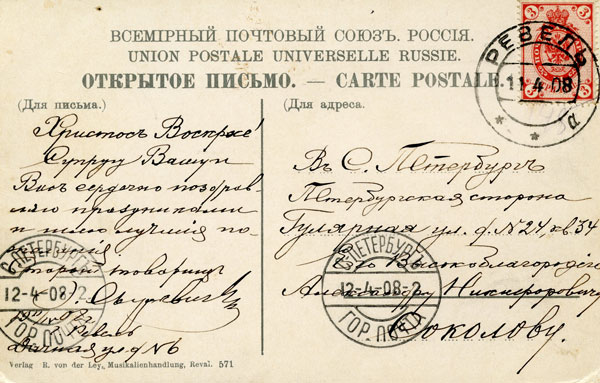 ВСЕМІРНЫЙ ПОЧТОВЫЙ СОЮЗЪ. РОССІЯ.
UNION POSTALE UNIVERSELLE RUSSIE.
ОТКРЫТОЕ ПИСЬМО. — CARTE POSTALE.
(Для письма.)
(Для адреса.)
3
3
3
3
РЕВЕЛЬ
11 4 08
* * а
Христосъ Воскресе!
Супругу Вашую
Васъ сердечно поздрав-
ляю праздниками
и шлю лучшія по-
желанія
Старый товарищ
Ревель
ул. д. № 6
С.ПЕТЕРБУРГЪ
12-4-08-2
ГОР. ПОЧТА
Въ С. Петербургъ
Петербургская сторона
Гулярная ул. д. N 24, кв. 34
Его Высокоблагородію
Александру Никифоровичу
Соколову.
С.ПЕТЕРБУРГЪ
12-4-08-2
ГОР. ПОЧТА
Verlag R. von der Ley, Musikalienhandlung, Reval. 571